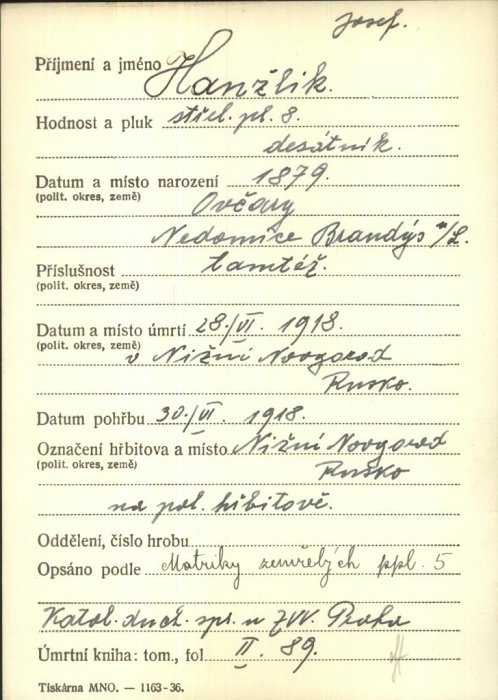 Josef.
Příjmení a jméno Hanžlik.
Hodnost a pluk střel. pl. 8.
desátník.
Datum a místo narození 1879.
(polit. okres, země) Ovčáry
Nedomice Brandýs n/L.
Příslušnost tamtéž.
(polit. okres, země)
Datum a místo úmrtí 28./VI. 1918.
(polit. okres, země) v Nižní Novgorod
Rusko.
Datum pohřbu 30./VI. 1918.
Označení hřbitova a místo Nižní Novgorod
(polit. okres, země) Rusko
na pol. hřbitově.
Oddělení, číslo hrobu
Opsáno podle Matriky zemřelých ppl. 5
Katol. duch. spr. u ZVV. Praha
Úmrtní kniha: tom., fol II. 89.
Tiskárna MNO. — 1163-36.